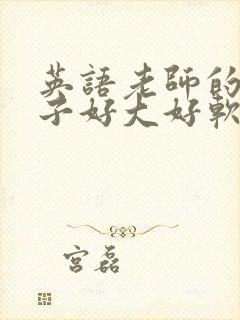 英語老師的
子好大好軟
宮磊